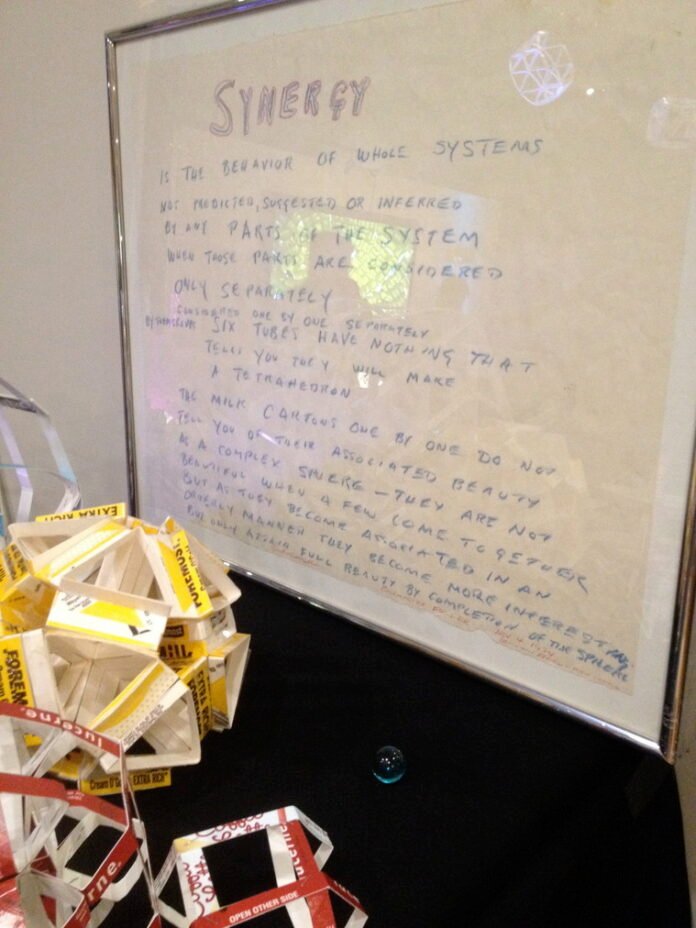 SYNERGY
IS THE BEHAVIOR OF WHOLE SYSTEMS
NOT PREDICTED, SUGGESTED OR INFERRED
BY ANY PARTS OF THE SYSTEM
WHEN THOSE PARTS ARE CONSIDERED
ONLY SEPARATELY
CONSIDERED ONE BY ONE SEPARATELY
BY THEMSELVES SIX TUBES HAVE NOTHING THAT
TELLS YOU THEY WILL MAKE
A TETRAHEDRON
THE MILK CARTONS ONE BY ONE DO NOT
TELL YOU OF THEIR ASSOCIATED BEAUTY
AS A COMPLEX SPHERE — THEY ARE NOT
BEAUTIFUL WHEN A FEW COME TOGETHER
BUT AS THEY BECOME ASSOCIATED IN AN
ORDERLY MANNER THEY BECOME MORE INTERESTING
BUT ONLY ATTAIN FULL BEAUTY BY COMPLETION OF THE SPHERE
EXTRA RICH
FOREMOST
FOREM
EXTRA RICH
EXTRA RICH
lucerne.
OPEN OTHER SIDE